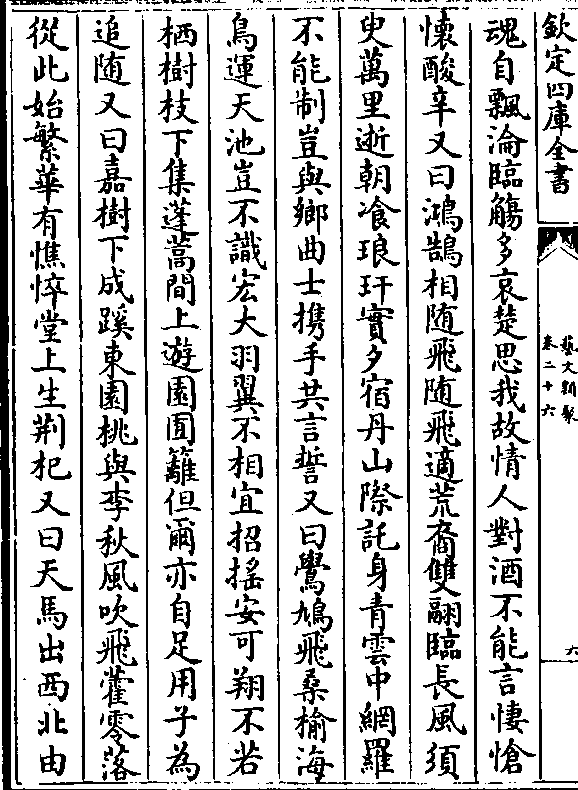 欽定四庫全書
藝文類聚
卷二十六
六
魂自飄淪臨觴多哀楚思我故情人對酒不能言悽愴
懷酸辛又曰鴻鵠相随飛随飛適荒裔雙翮臨長風須
臾萬里逝朝飡琅玕實夕宿丹山際託身青雲中網羅
不能制豈與鄉曲士携手共言誓又曰鸒鳩飛桑榆海
鳥運天池豈不識宏大羽翼不相宜招搖安可翔不若
栖樹枝下集蓬蒿間上遊園囿籬但爾亦自足用子為
追随又曰嘉樹下成蹊東園桃與李秋風吹飛藿零落
從此始繁華有憔悴堂上生荆杞又曰天馬出西北由